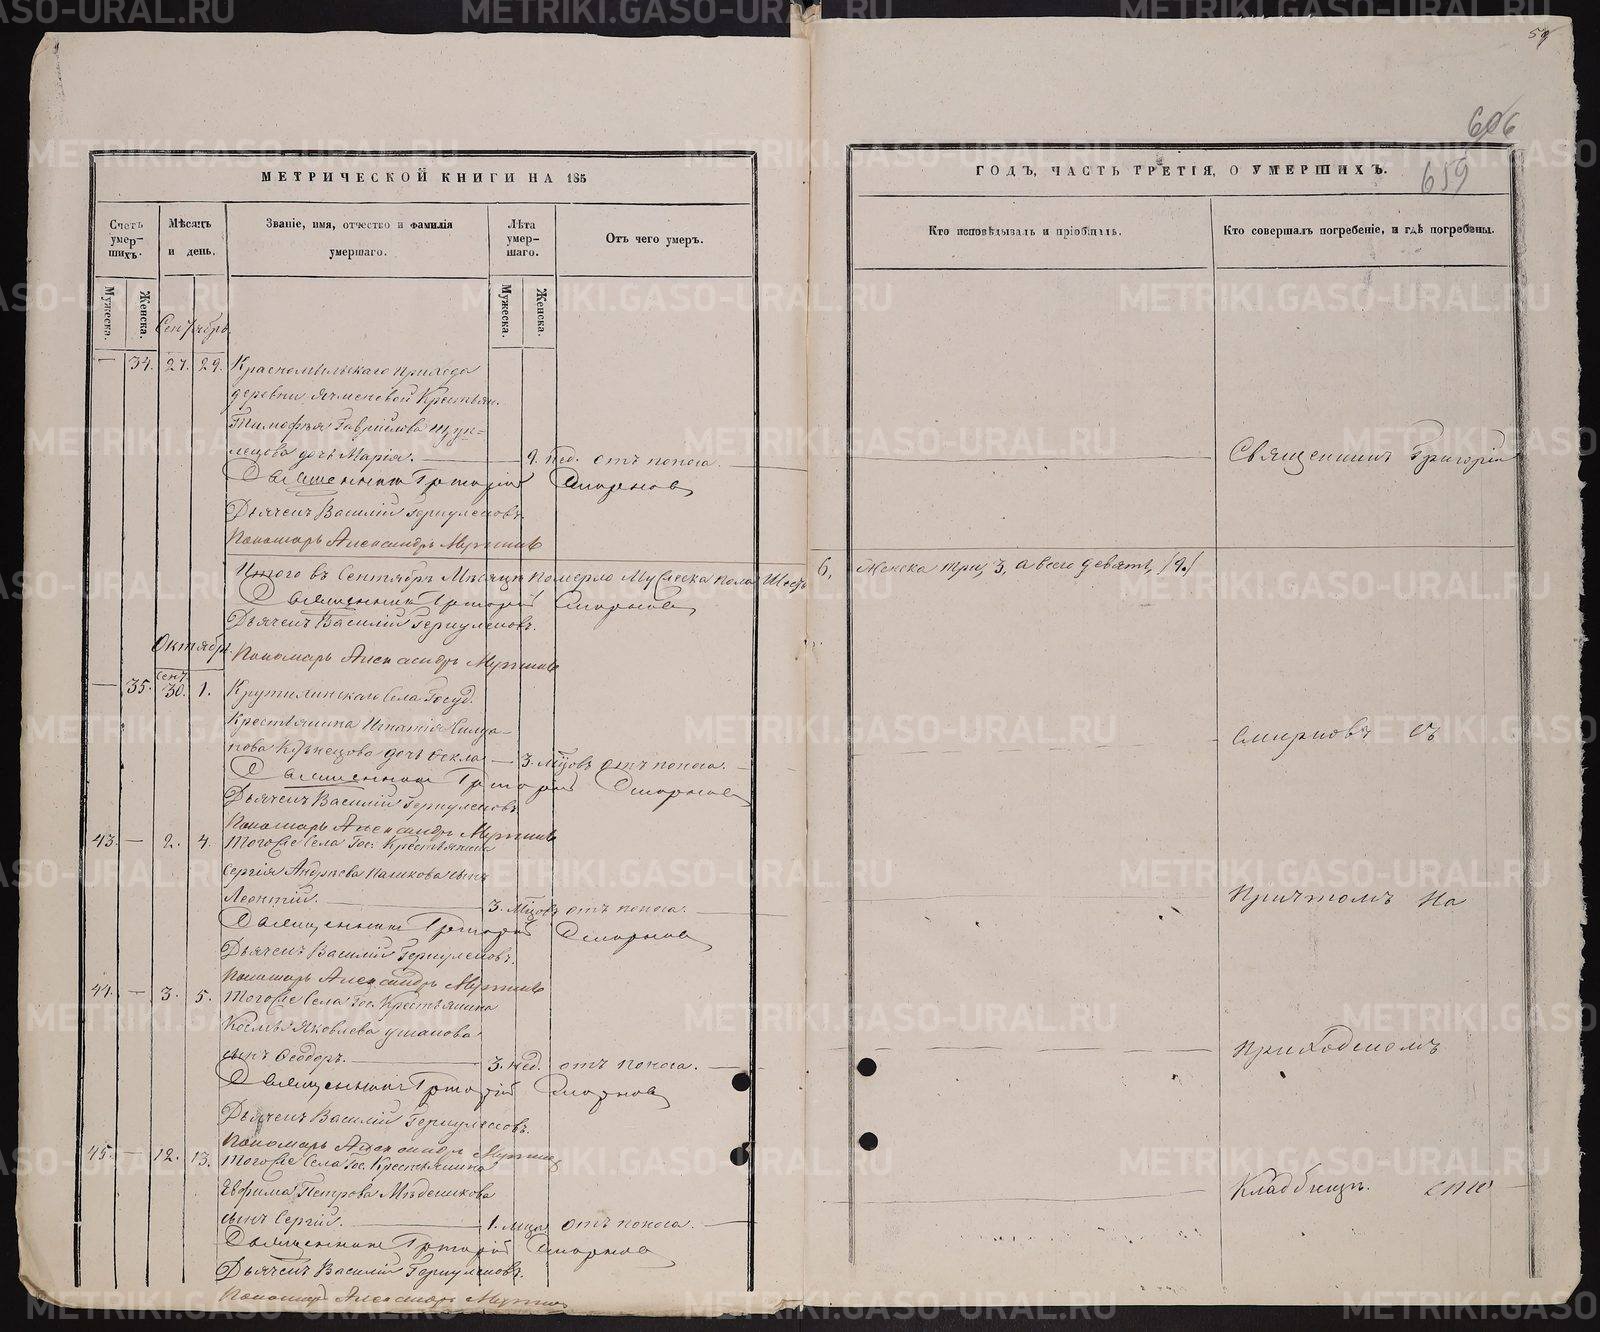 59
606
659
МЕТРИЧЕСКОЙ КНИГИ НА 185
ГОДЪ, ЧАСТЬ ТРЕТІЯ, О УМЕРШИХЪ.
Счетъ умер-шихъ.
Мужеска.
Женска.
Мѣсяцъ и день.
Званіе, имя, отчество и фамилія умершаго.
Лѣта умер-шаго.
Мужеска.
Женска.
Отъ чего умеръ.
Кто исповѣдывалъ и пріобщалъ.
Кто совершалъ погребеніе, и гдѣ погребены.
Сентябрь
— 34. 27. 29. Красномыльскаго прихода
деревни Ячменевой Крестьян.
Тимофея Гаврилова
дочь Марія. — 9. нед. отъ поноса.
Священникъ Григорій
Священникъ Григорій Смирновъ
Дьячекъ Василій
Пономарь Александръ
Итого въ Сентябрѣ Мѣсяцѣ померло Мужеска пола Шесть 6, Женска три, 3, а всего девять, /9./
Священникъ Григорій Смирновъ
Дьячекъ Василій
Октябрь
Пономарь Александръ
— 35. Сент. 30. 1. Крутихинскаго Села Госуд.
Крестьянина Игнатія
дочь Ѳекла — 3. мѣцовъ отъ поноса.
Смирновъ съ
Священникъ Григорій Смирновъ
Дьячекъ Василій
Пономарь Александръ
43. — 2. 4. Того же Села Гос. Крестьянина
Сергія Андреева Пашкова сынъ
Леонтій. — 3. мѣцовъ отъ поноса.
Причтомъ на
Священникъ Григорій Смирновъ
Дьячекъ Василій
Пономарь Александръ
44. — 3. 5. Того же Села Гос. Крестьянина
Космы Яковлева Ушакова
сынъ Ѳеодоръ. — 3. нед. отъ поноса.
Приходскомъ
Священникъ Григорій Смирновъ
Дьячекъ Василій
Пономарь Александръ
45. — 12. 13. Того же Села Гос. Крестьянина
Евфима Петрова
сынъ Сергій. — 1. мѣца отъ поноса.
Кладбищѣ.
Священникъ Григорій Смирновъ
Дьячекъ Василій
Пономарь Александръ
METRIKI.GASO-URAL.RU